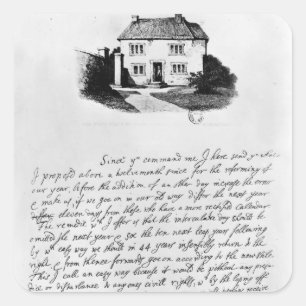 Since yᵘ command me, I have send yᵘ what
I propos'd above a twelvemonth since for the reforming of
our year, before the addition of an other day increase the error
& make us, if we goe on in our old way differ the next year
eleven days from those, who have a more rectified Calendar
The remedie wᶜʰ I offer is that the intercalar day should be
omitted the next year, & soe the ten next leap years following
by wᶜʰ easy way we should in 44 years insensibly return to the
right & from thence forwards goe on according to the new stile
This I call an easy way because it would be without any preju-
dice or disturbance, to any ones civil rights, wᶜʰ by lopping off